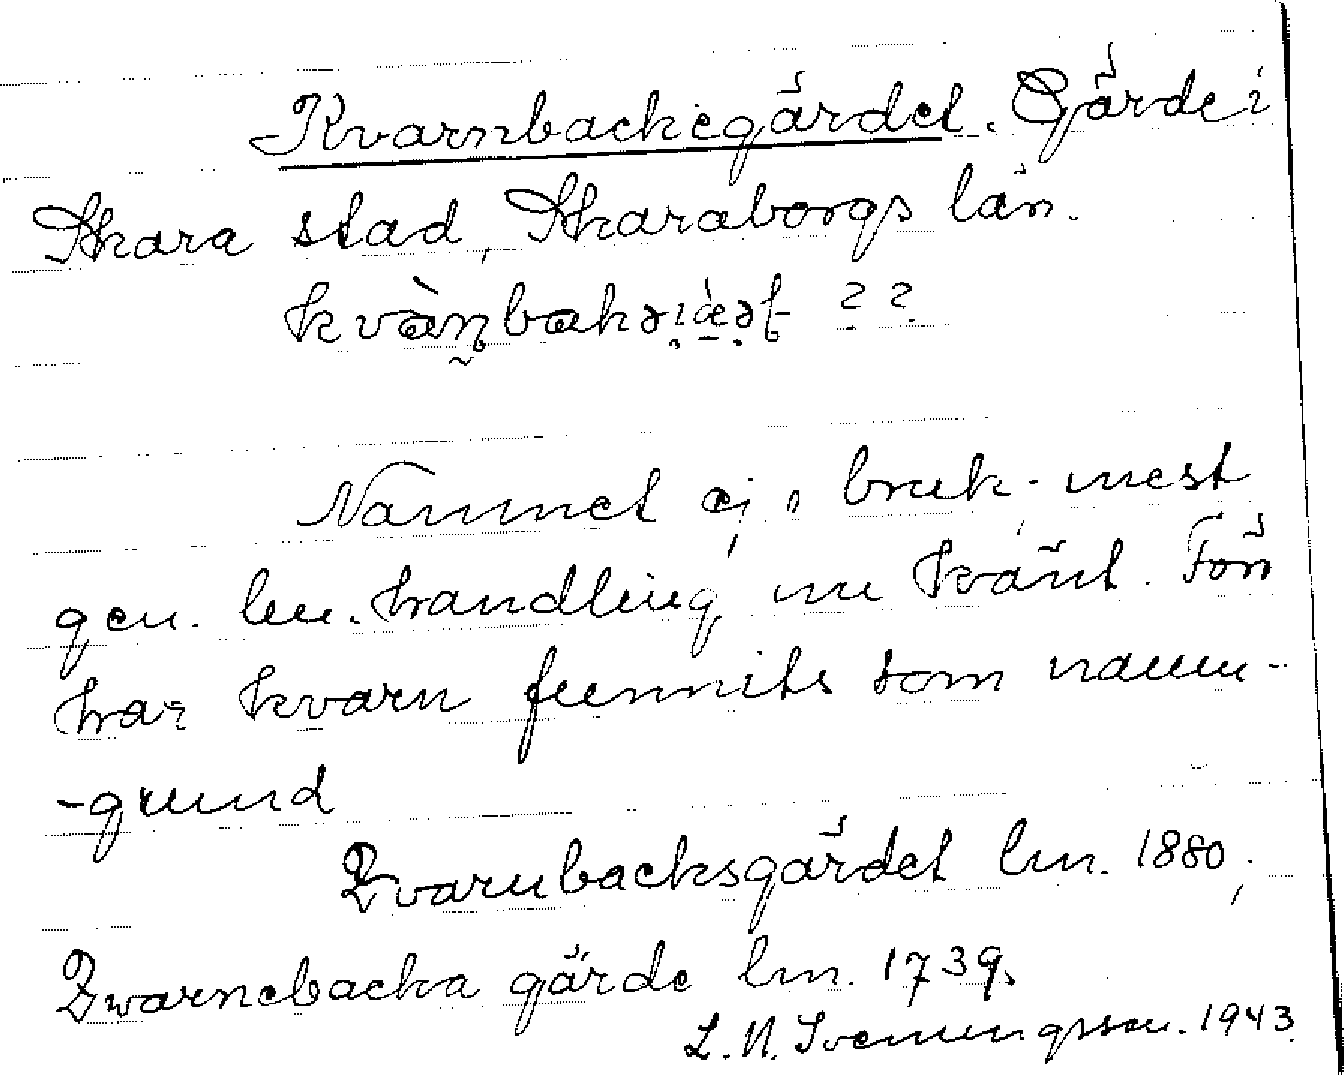 Kvarnbackegärdet. Gärde i
Skara stad, Skaraborgs län.
Namnet ej i bruk. mest
gen. lm. handling nu känt. Förr
har kvarn funnits som namn-
-grund
Qvarnbacksgärdet lm. 1880,
Qwarnebacka gärde lm. 1739.
L. N. Svenungsson. 1943